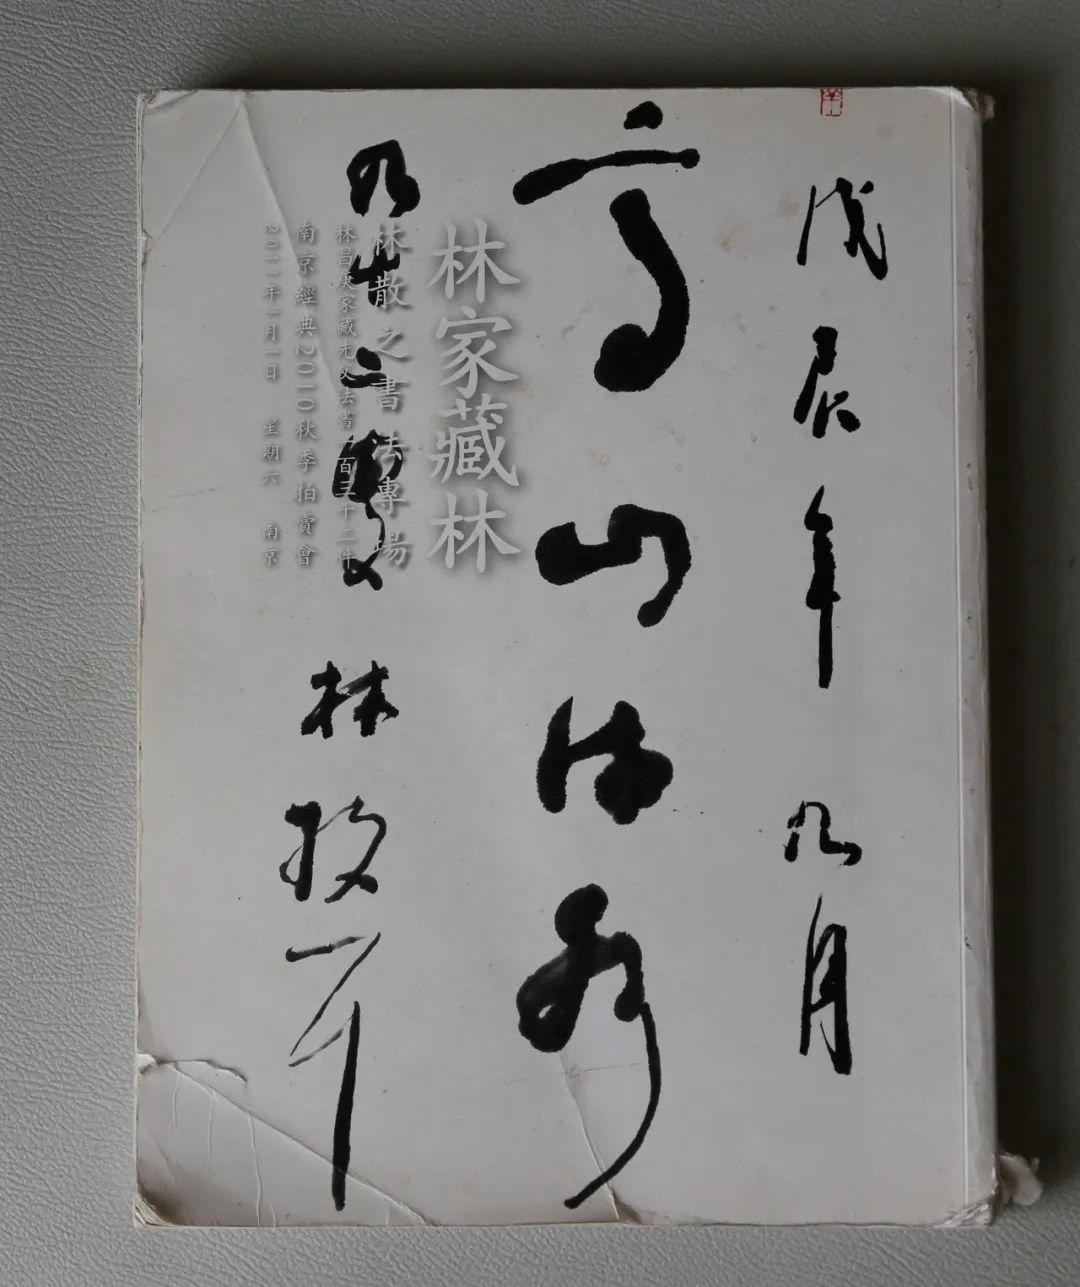 戊辰年九月
高山流水
九十二叟 林散耳
林家藏林
林散之書法專場
林昌庚家藏先父法書一百三十二件
南京經典2010秋季拍賣會
2011年1月1日 星期六 南京